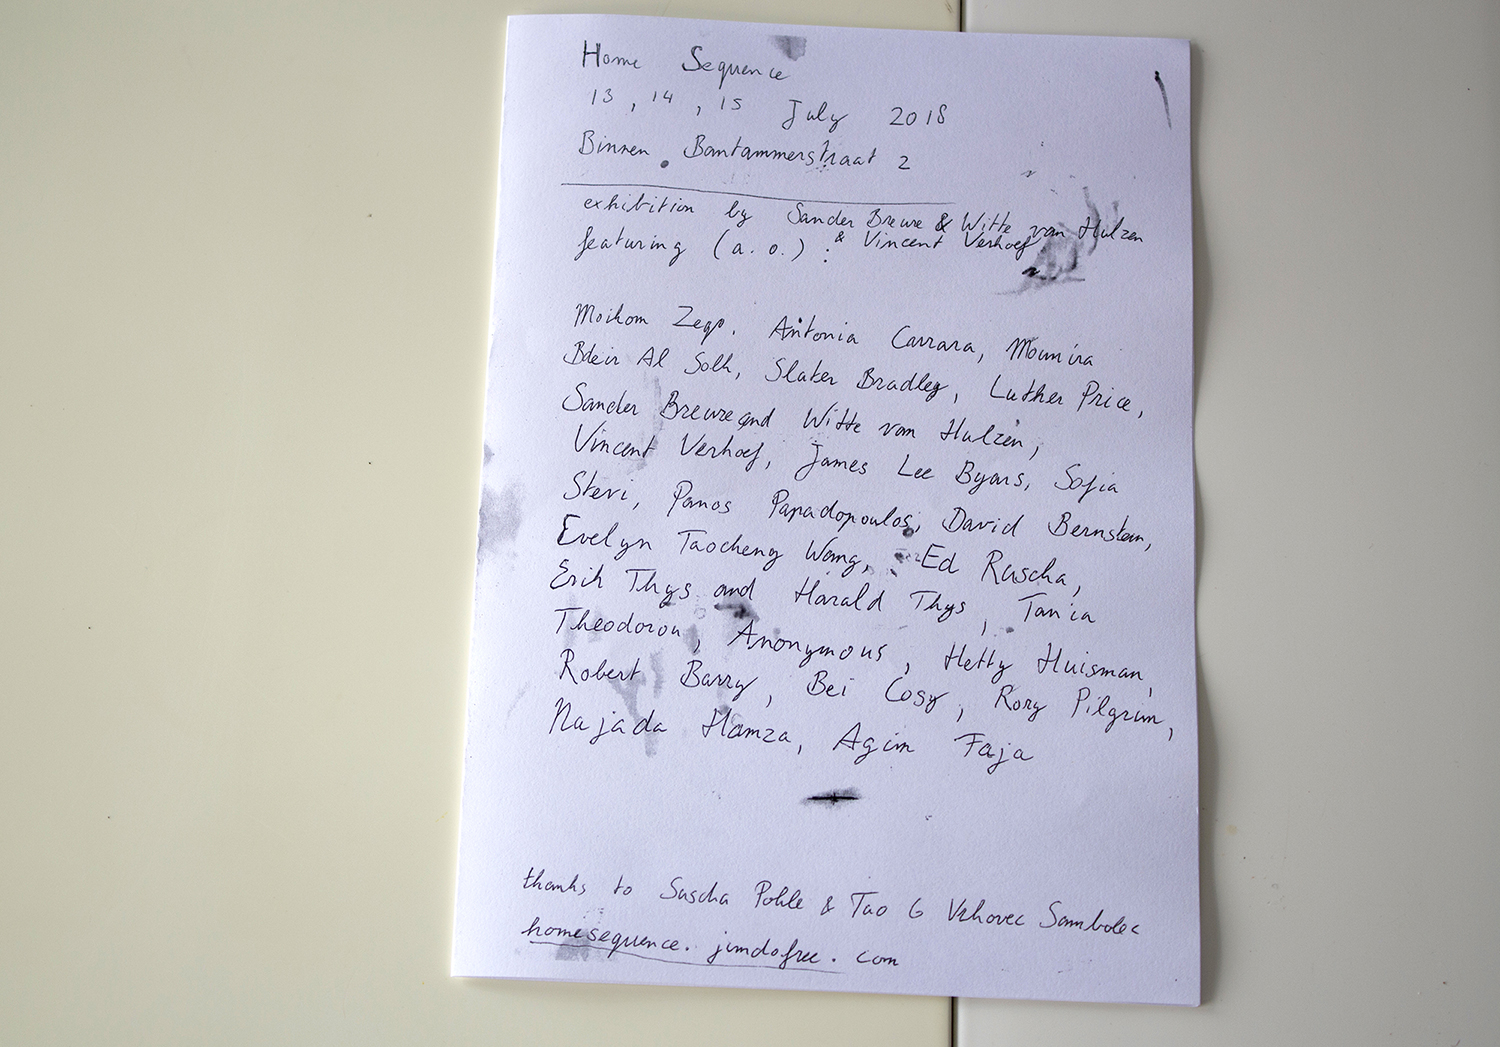 Home Sequence
13, 14, 15 July 2018
Binnen Bantammerstraat 2
exhibition by Sander Breure & Witte van Hulzen
& Vincent Verhoef
featuring (a.o.) :
Moikom Zeqo. Antonia Carrara, Mounira
Bdeir Al Solh, Slater Bradley, Luther Price,
Sander Breure and Witte van Hulzen,
Vincent Verhoef, James Lee Byars, Sofia
Stevi, Panos Papadopoulos, David Bernstein,
Evelyn Taocheng Wang, Ed Ruscha,
Erik Thys and Harald Thys, Tania
Theodorou, Anonymous, Hetty Huisman,
Robert Barry, Bei Cosy, Rory Pilgrim,
Najada Hamza, Agim Faja
thanks to Sascha Pohle & Tao G Vrhovec Sambolec
homesequence.jimdofree.com